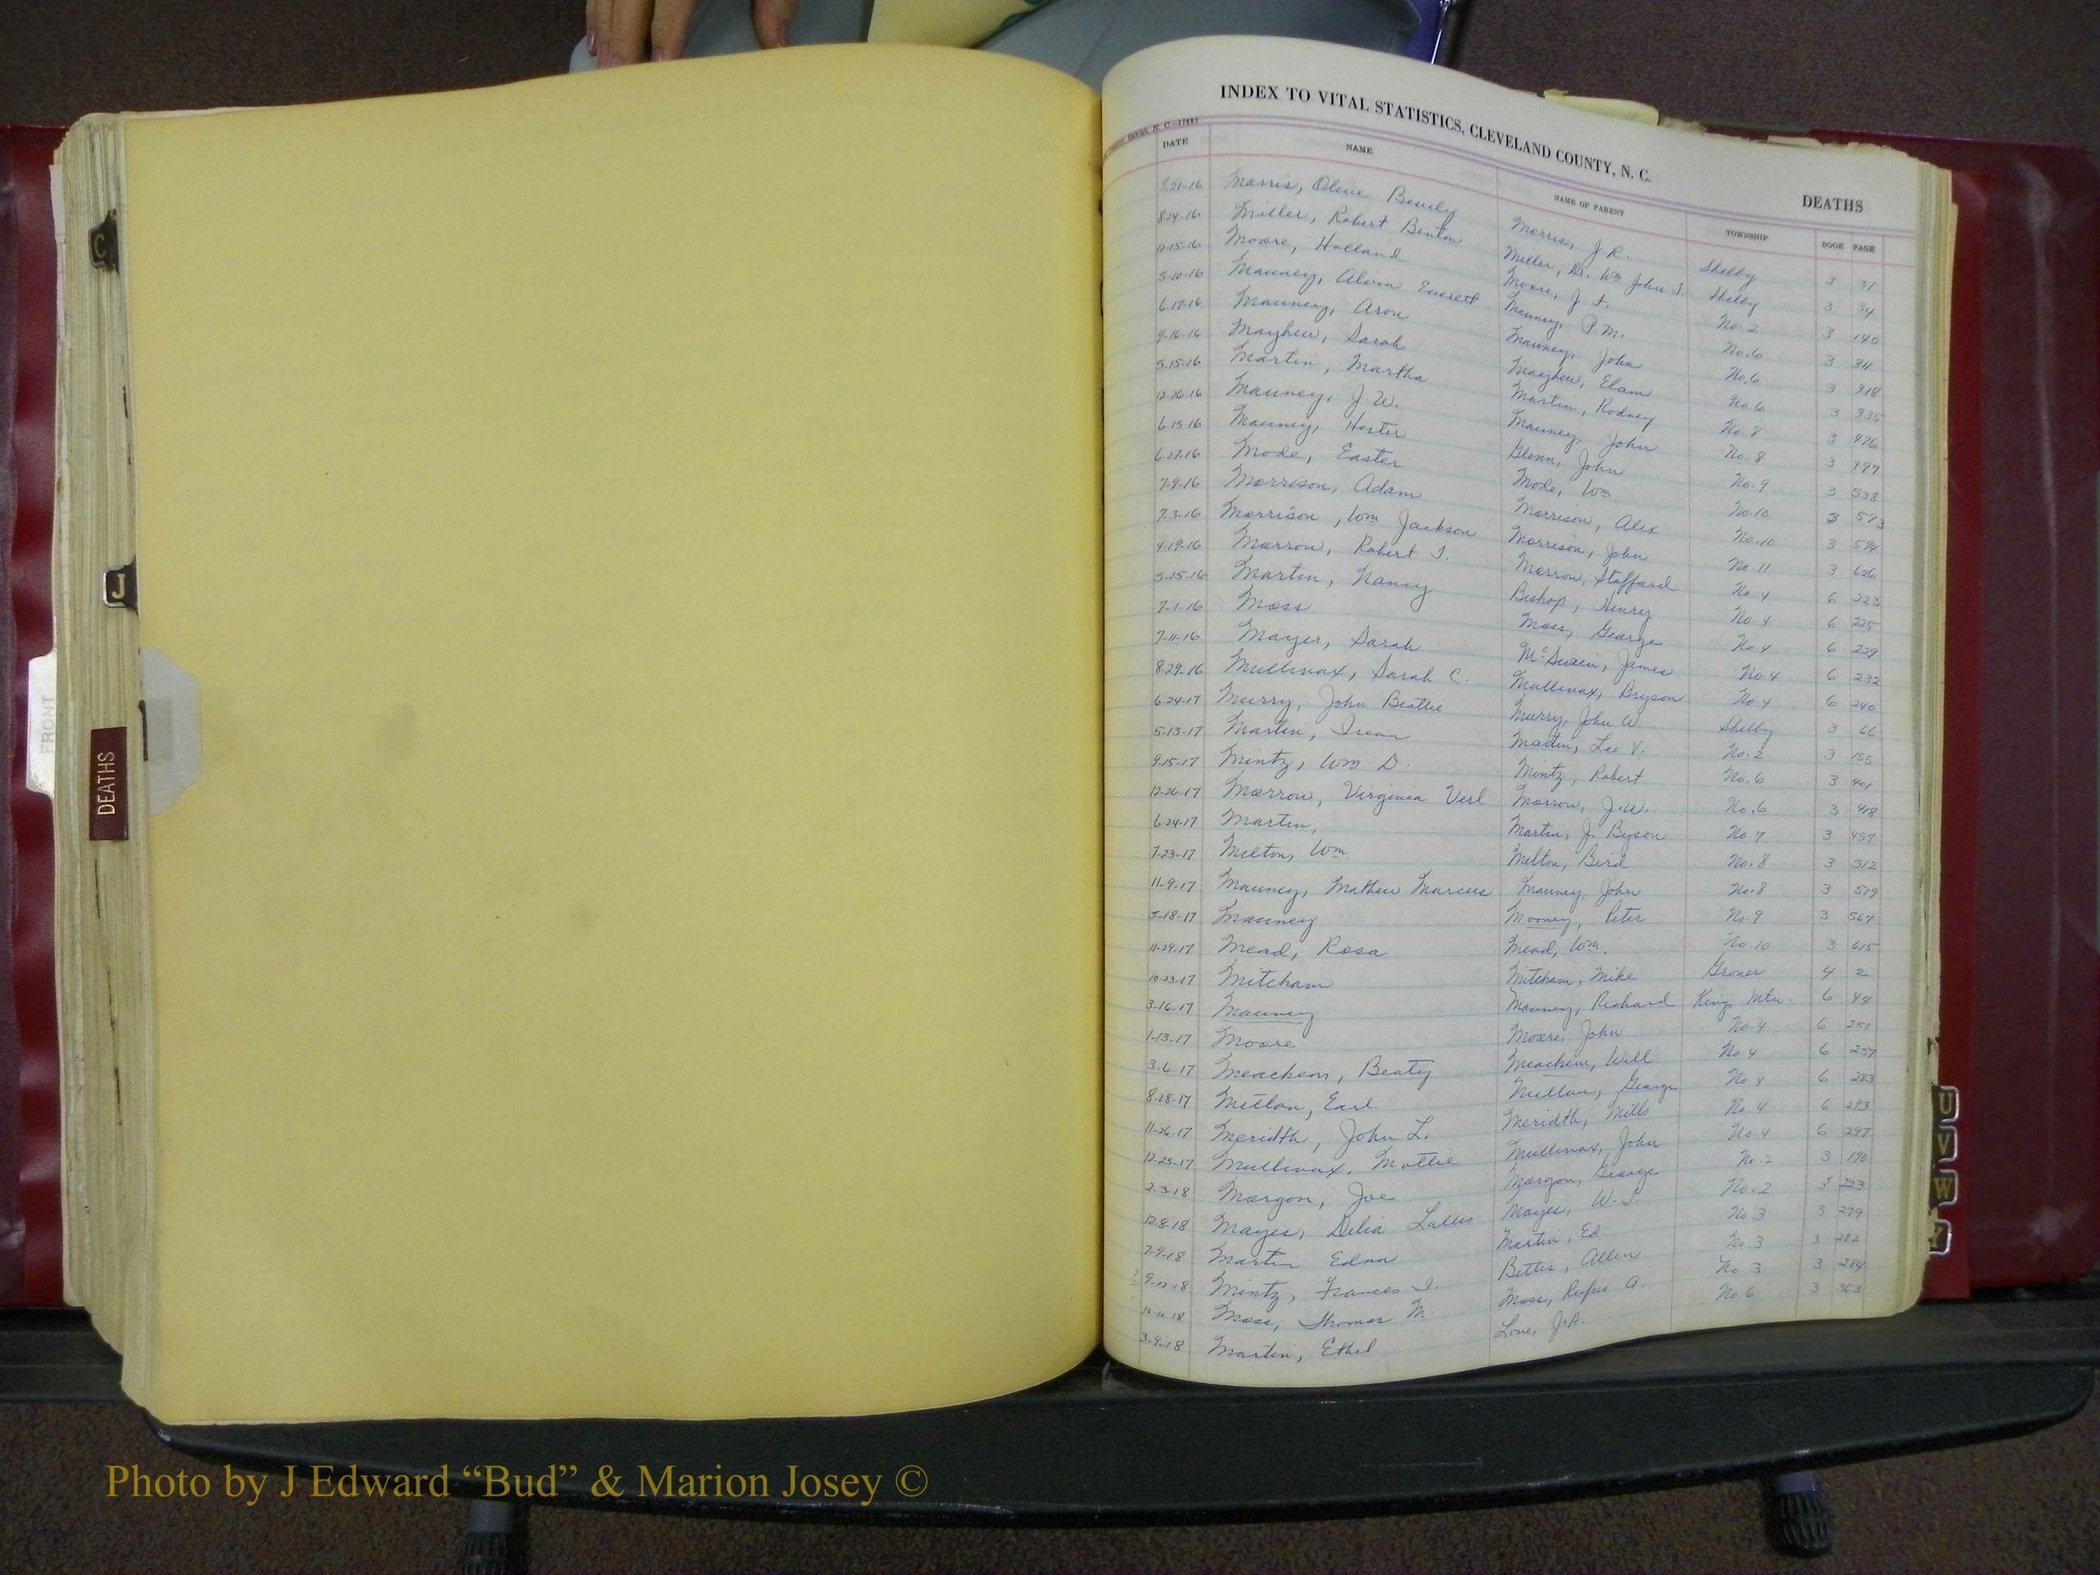 INDEX TO VITAL STATISTICS, CLEVELAND COUNTY, N. C.
DEATHS
N. C.—17885
DATE NAME NAME OF PARENT TOWNSHIP BOOK PAGE
8-21-16 Morris, Olive Beverly Morris, J. R. Shelby 3 31
8-24-16 Miller, Robert Benton Miller, Dr. Wm John T. Shelby 3 34
12-15-16 Moore, Holland Moore, J. F. No. 2 3 140
5-10-16 Mauney, Alvin Everett Mauney, P. M. No. 6 3 311
6-17-16 Mauney, Aron Mauney, John No. 6 3 318
9-16-16 Mayhew, Sarah Mayhew, Elam No. 6 3 335
5-15-16 Martin, Martha Martin, Rodney No. 8 3 476
12-26-16 Mauney, J. W. Mauney, John No. 8 3 497
6-15-16 Mauney, Hester Glenn, John No. 9 3 538
6-27-16 Mode, Easter Mode, Wm. No. 10 3 573
7-9-16 Morrison, Adam Morrison, Alex No. 10 3 594
7-3-16 Morrison, Wm Jackson Morrison, John No. 11 3 626
4-19-16 Morrow, Robert T. Morrow, Stafford No. 4 6 223
5-15-16 Martin, Nancy Bishop, Henry No. 4 6 225
7-1-16 Moss Moss, George No. 4 6 229
7-11-16 Mayer, Sarah McSwain, James No. 4 6 232
8-29-16 Mullinax, Sarah C. Mullinax, Bryson No. 4 6 240
6-24-17 Murry, John Beattie Murry, John W. Shelby 3 66
5-13-17 Martin, Irean Martin, Lee V. No. 2 3 155
9-15-17 Mintz, Wm D. Mintz, Robert No. 6 3 401
12-26-17 Morrow, Virginia Verl Morrow, J. W. No. 6 3 418
6-24-17 Martin, Martin, J. Byson No 7 3 457
7-23-17 Melton, Wm. Melton, Bird No. 8 3 512
11-9-17 Mauney, Mathew Marcus Mauney, John No. 8 3 519
5-18-17 Mauney Mooney, Peter No. 9 3 567
11-29-17 Mead, Rosa Mead, Wm. No. 10 3 615
10-23-17 Mitcham Mitcham, Mike Grover 4 2
3-16-17 Mauney Mauney, Richard Kings Mtn. 6 44
1-13-17 Moore Moore, John No. 4 6 251
3-6-17 Meacheon, Beaty Meachem, Will No. 4 6 257
8-28-17 Melton, Earl George No. 4 6 283
11-26-17 Meridth, John L. Meridth, Mills No. 4 6 293
12-25-17 Mullinax, Mottie Mullinax, John No. 4 6 297
2-3-18 Morgon, Joe Morgon, George No. 2 3 190
12-8-18 Mayes, Delia Mayes, W. S. No. 2 3 223
7-9-18 Martin Edna Martin, Ed No 3 3 279
? 9-12-18 Mintz, Frances I. Bettis, Allen No. 3 3 282
10-10-18 Moss, Thomas M. Moss, Rufus A. No 3 3 284
3-9-18 Martin, Ethel Love, J. A. No. 6 3 363
C
J
DEATHS
FRONT
U
V
W
Y
Photo by J Edward “Bud” & Marion Josey ©